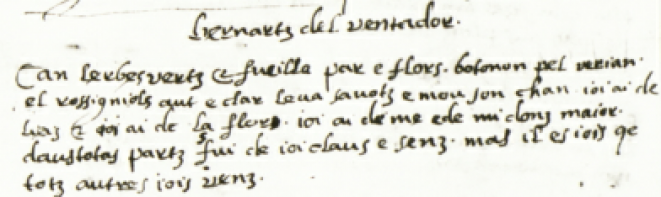 bernartz del ventador.
Can lerbes vertz & fueilla par e flors. botonon pel verian.
el rossigniols aut e clar leua sa uotz e mou son chan. ioi ai de
luas & ioi ai de la flors. ioi ai de me e de midonz maior.
daus totas partz sui de ioi claus e senz. mas il es iois qe
totz autres iois venz.